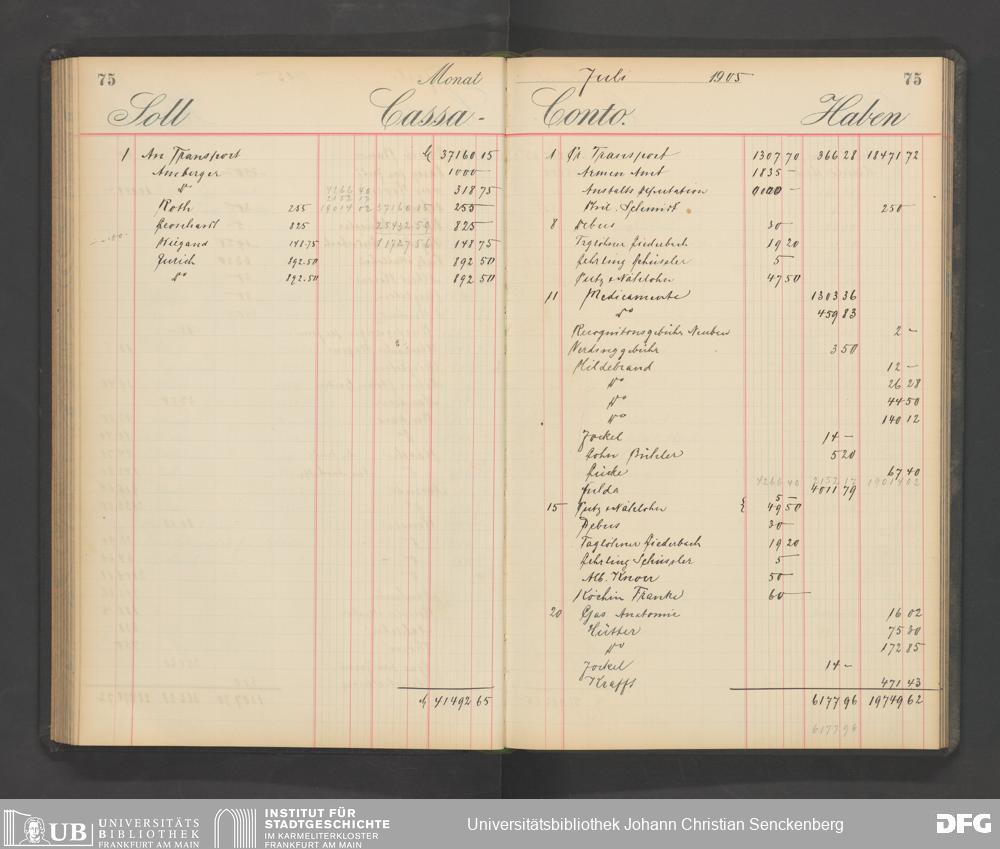 75 Monat
Soll Cassa-
1 An Transport ℳ 37160 15
Amberger 1000 —
do 318 75
Roth 255 255 —
Leonhardt 825 825 —
Wiegand 148.75 148 75
Zurich 892.50 892 50
do 892.50 892 50
4266 40
2152 17
19014 02 37160 15
25432 59
11727 56
ℳ 41492 65
Juli 1905 75
Conto. Haben
1 Pr Transport 1307 70 366 28 18471 72
Armen Amt 1835 —
Anstalts Deputation
Schmidt 250 —
8 Debus 30 —
Taglöhner Diederbach 19 20
Lehrling Schüssler 5 —
Putz & Nählohn 47 50
11 Medicamente 1303 36
do 459 83
Recognitionsgebühr 2 —
Verdinggebühr 3 50
Hildebrand 12 —
do 26 28
do 44 50
do 140 12
Jockel 14 —
John Bühler 5 20
Lücke 67 40
4266 40 2152 17 19014 02
Fulda 4011 79
5 —
15 Putz & Nählohn 49 50
Debus 30 —
Taglöhner Diederbach 19 20
Lehrling Schüssler 5 —
Alb. Knorr 50 —
Köchin Franke 60 —
20 Gas Anatomie 16 02
Hütter 75 30
do 172 85
Jockel 14 —
Krafft 471 43
6177 96 19749 62
6177 96
UB UNIVERSITÄTS BIBLIOTHEK FRANKFURT AM MAIN
INSTITUT FÜR STADTGESCHICHTE IM KARMELITERKLOSTER FRANKFURT AM MAIN
Universitätsbibliothek Johann Christian Senckenberg
DFG